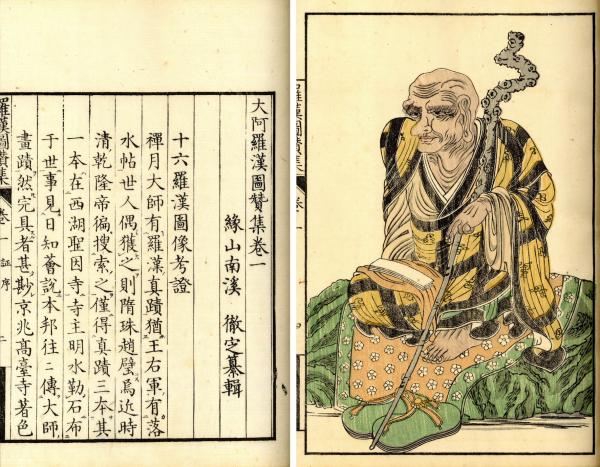 大阿羅漢圖贊集卷一
緣山南溪 徹定纂輯
十六羅漢圖像考證
禪月大師有羅漢真蹟猶王右軍有落
水帖世人偶獲之則隋珠趙璧焉近時
清乾隆帝徧搜索之僅得真蹟三本其
一本在西湖聖因寺寺主明水勒石布
于世事見日知薈說本邦往々傳大師
畫蹟然完具者甚尠京兆高臺寺著色
羅漢圖贊集 卷一 証序 二
羅漢圖贊集 卷一